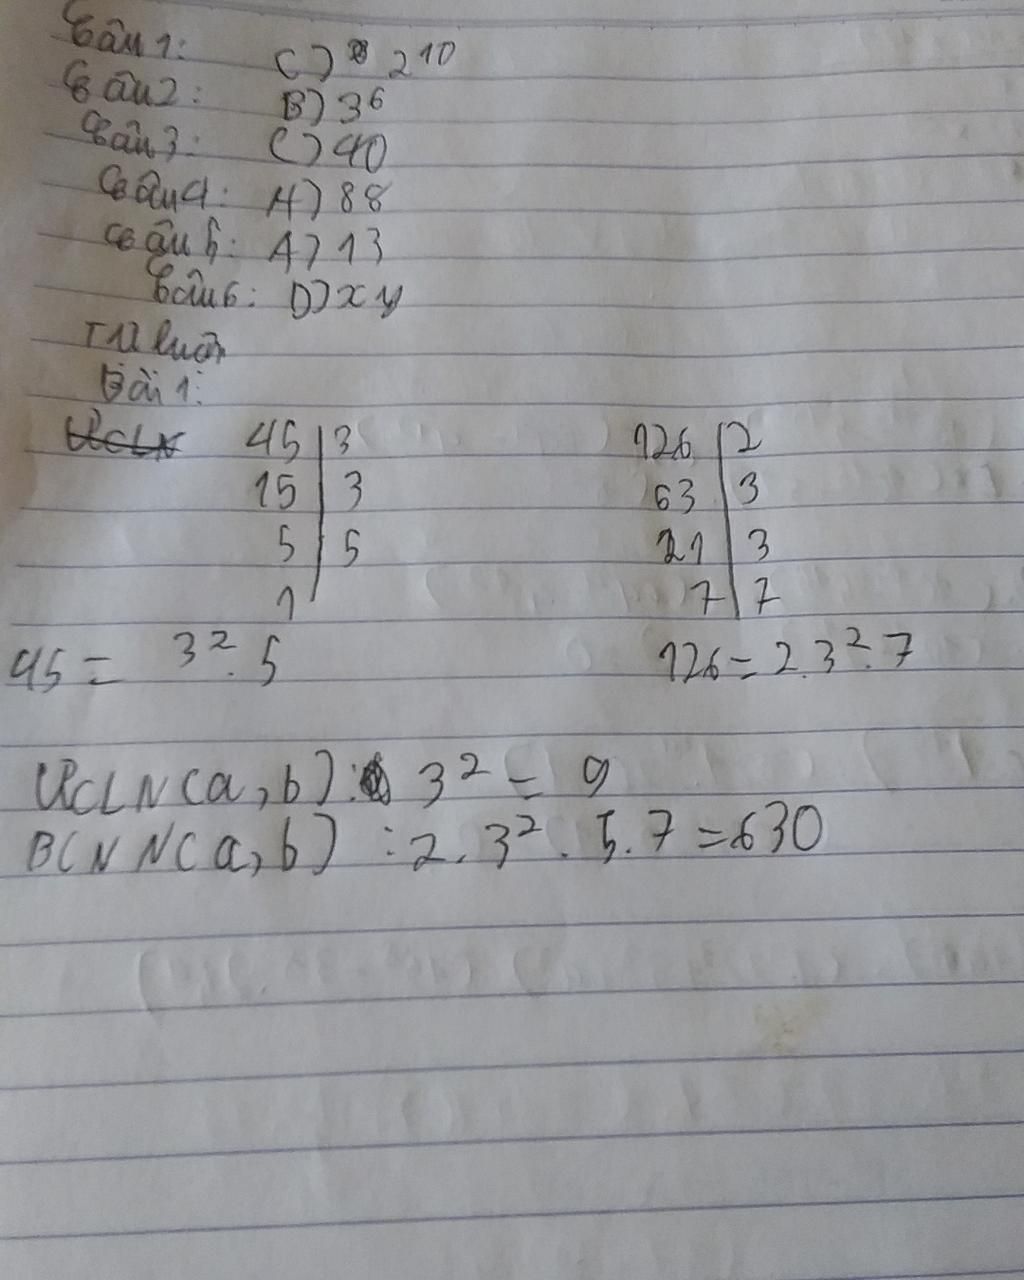 Câu 1: C) 2^10
Câu 2: B) 3^6
Câu 3: C) 40
Câu 4: A) 88
Câu 5: A) 13
Câu 6: D) x y
Tự luận
Bài 1:
ƯCLN 45 | 3 126 | 2
15 | 3 63 | 3
5 | 5 21 | 3
1 7 | 7
45 = 3^2. 5 126 = 2.3^2.7
ƯCLN(a,b): 3^2 = 9
BCNN(a,b) : 2. 3^2. 5. 7 = 630